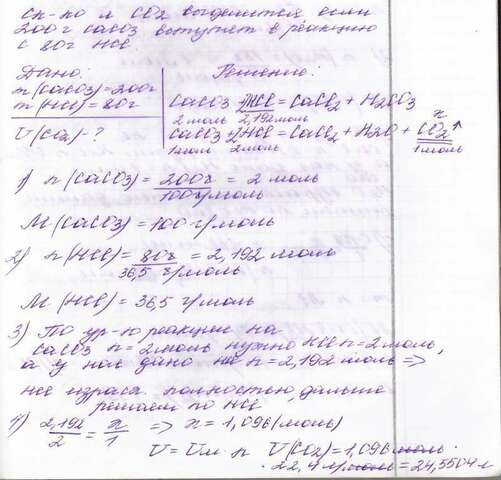 Ск-ко л CO2 выделится если
200г CaCO3 вступает в реакцию
с 80г HCl.
Дано: Решение:
m(CaCO3)=200г
m(HCl)=80г
V(CO2)-?
CaCO3+2HCl=CaCl2+H2CO3
2 моль 2,192 моль x
CaCO3+2HCl=CaCl2+H2O+CO2↑
1 моль 2 моль 1 моль
1) n(CaCO3)=200г/100г/моль=2 моль
M(CaCO3)=100 г/моль
2) n(HCl)=80г/36,5 г/моль=2,192 моль
M(HCl)=36,5 г/моль
3) По ур-ю реакции на
CaCO3 n=2моль нужно HCl n=2моль,
а у нас дано HCl n=2,192 моль =>
HCl израсх. полностью, дальше
решаем по HCl
4) 2,192/2=x/1 => x=1,096(моль)
V=Vм·n V(CO2)=1,096моль
·22,4 л/моль=24,5504 л